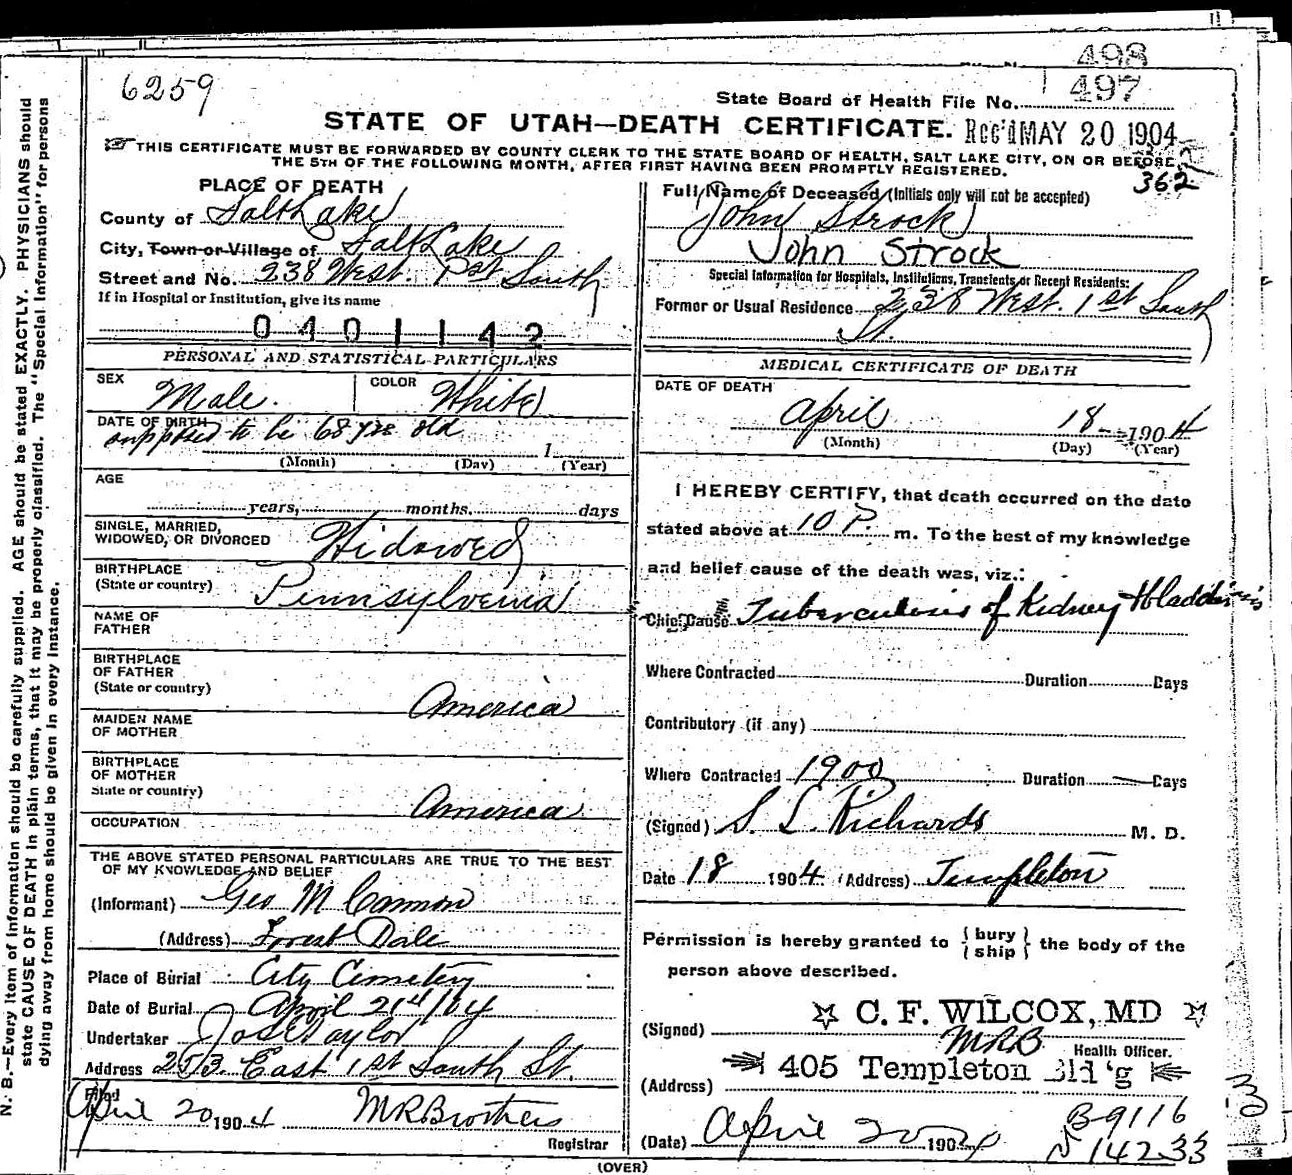 6259
498
State Board of Health File No. 497
STATE OF UTAH—DEATH CERTIFICATE. Rec'd MAY 20 1904
THIS CERTIFICATE MUST BE FORWARDED BY COUNTY CLERK TO THE STATE BOARD OF HEALTH, SALT LAKE CITY, ON OR BEFORE
THE 5TH OF THE FOLLOWING MONTH, AFTER FIRST HAVING BEEN PROMPTLY REGISTERED.
362
PLACE OF DEATH
County of Salt Lake
City, Town or Village of Salt Lake
Street and No. 238 West. 1st South
If in Hospital or Institution, give its name
0401142
PERSONAL AND STATISTICAL PARTICULARS
SEX Male. COLOR White
DATE OF BIRTH
supposed to be 68 yrs old
1
(Month) (Day) (Year)
AGE
years, months. days
SINGLE, MARRIED,
WIDOWED, OR DIVORCED Widowed
BIRTHPLACE
(State or country) Pennsylvania
NAME OF
FATHER
BIRTHPLACE
OF FATHER
(State or country) America
MAIDEN NAME
OF MOTHER
BIRTHPLACE
OF MOTHER
State or country) America
OCCUPATION
THE ABOVE STATED PERSONAL PARTICULARS ARE TRUE TO THE BEST
OF MY KNOWLEDGE AND BELIEF
(Informant) Geo M Cannon
(Address) Forest Dale
Place of Burial City Cemetery
Date of Burial April 21st/04
Undertaker Jos E Taylor
Address 253 East 1st South St.
Filed
April 20 1904 M R Brothers
Registrar
Full Name of Deceased (Initials only will not be accepted)
John Strock
John Strock
Special Information for Hospitals, Institutions, Transients or Recent Residents:
Former or Usual Residence 238 West. 1st South
St.
MEDICAL CERTIFICATE OF DEATH
DATE OF DEATH
April 18 1904
(Month) (Day) (Year)
I HEREBY CERTIFY, that death occurred on the date
stated above at 10 P. m. To the best of my knowledge
and belief cause of the death was, viz.:
Chief Cause Tuberculosis of Kidney + bladder
Where Contracted Duration Days
Contributory (if any)
Where Contracted 1900 Duration Days
(Signed) S. L. Richards M. D.
Date 18 1904 (Address) Templeton
Permission is hereby granted to { bury
ship } the body of the
person above described.
C. F. WILCOX, MD
(Signed) MRB Health Officer.
405 Templeton Bld'g
(Address)
(Date) April 20 1904
B-9116
N 142-33
(OVER)
N. B.—Every item of Information should be carefully supplied. AGE should be stated EXACTLY. PHYSICIANS should
state CAUSE OF DEATH in plain terms, that it may be properly classified. The "Special Information" for persons
dying away from home should be given in every instance.